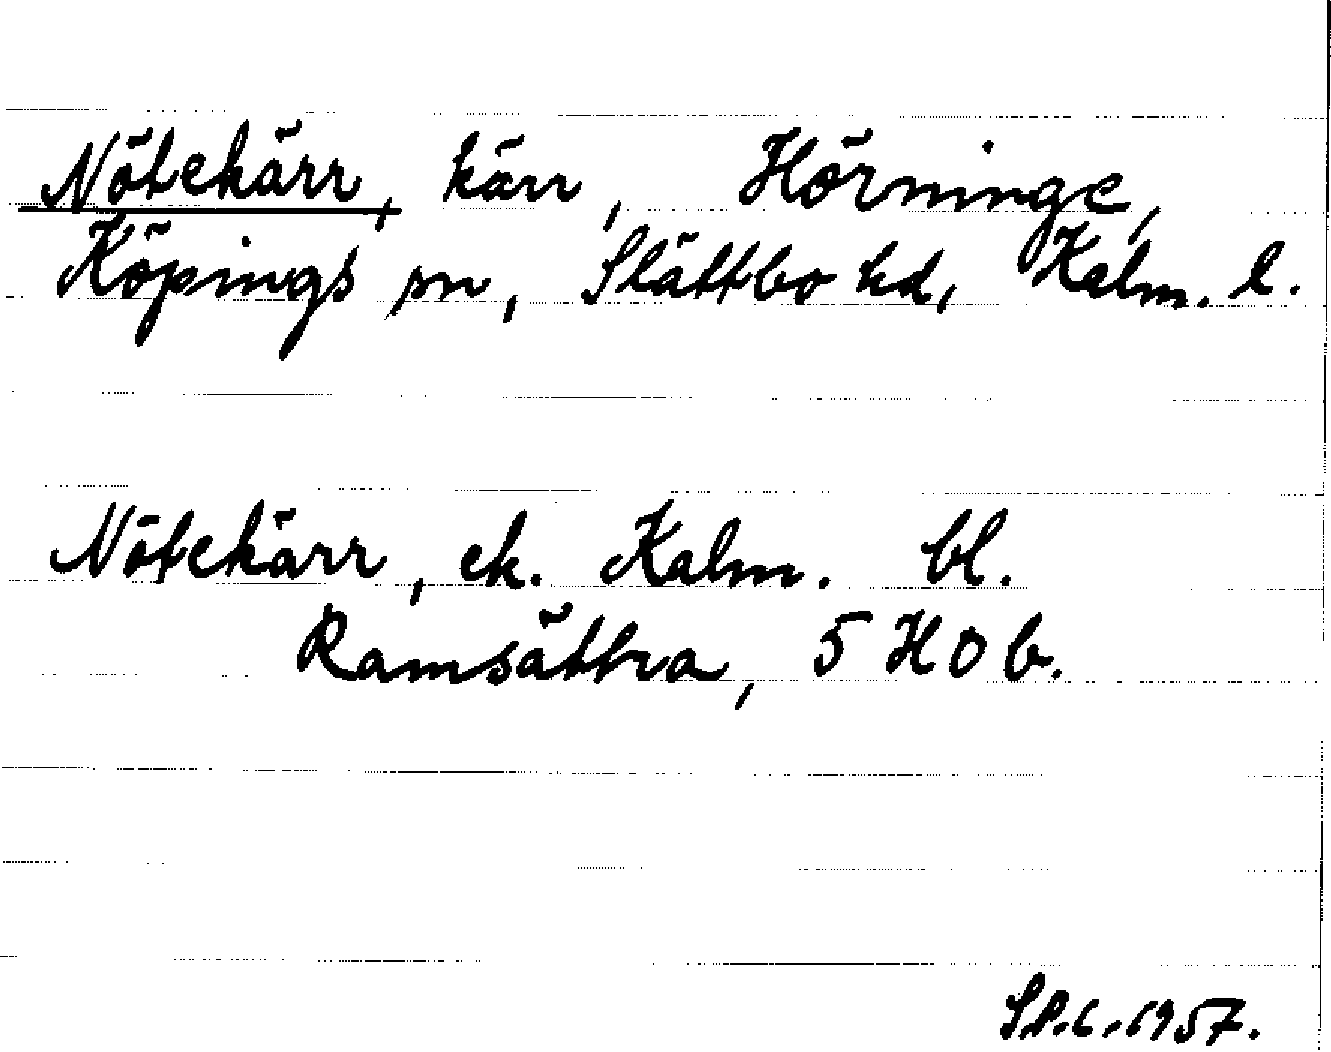 Nötekärr, kärr, Hörninge,
Köpings sn, Slättbo hd, Kalm. l.
Nötekärr, ek. Kalm. bl.
Ramsättra, 5 H 0 b.
1957.